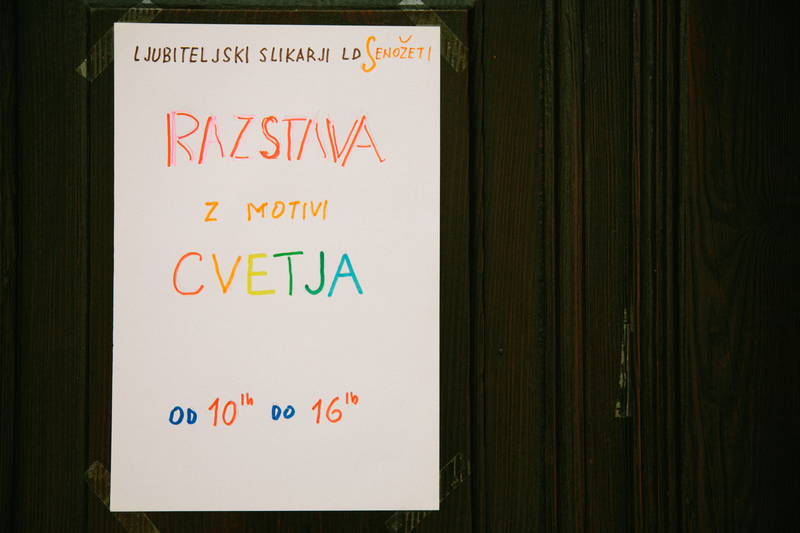 LJUBITELJSKI SLIKARJI LD SENOŽETI
RAZSTAVA
Z MOTIVI
CVETJA
OD 10ih DO 16ih